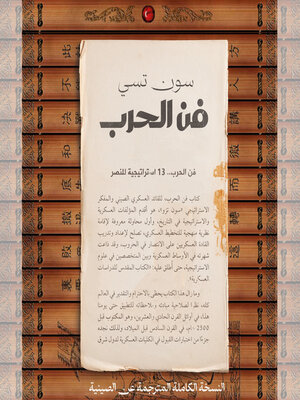 سون تسي
فن الحرب
فن الحرب.. 13 استراتيجية للنصر
كتاب فن الحرب، للقائد العسكري الصيني والمفكر
الاستراتيجي "سون تزو"، هو أقدم المؤلفات العسكرية
والاستراتيجية في التاريخ، وأول محاولة معروفة لإقامة
نظرية منهجية للتخطيط العسكري، تصلح لإعداد وتدريب
القادة العسكريين على الانتصار في الحروب، وقد ذاعت
شهرته في الأوساط العسكرية وبين المتخصصين في علوم
الاستراتيجية، حتى أطلق عليه: «الكتاب المقدس للدراسات
العسكرية».
وما زال هذا الكتاب يحظى بالاحترام والتقدير في العالم
كله، نظرا لصلاحية مبادئه وملاءمتها للتطبيق حتى يومنا
هذا، في أوائل القرن الحادي والعشرين، وهو المكتوب قبل
2500 عام، في القرن السادس قبل الميلاد، ولذلك نجده
جزءًا من اختبارات القبول في الكليات العسكرية لدول شرق
النسخة الكاملة المترجمة عن الصينية